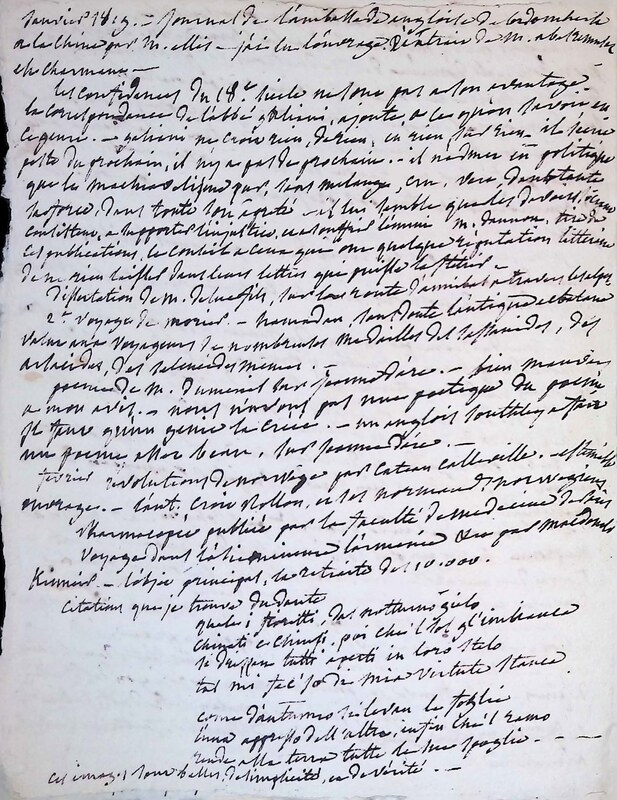 janvier 1819 – journal de l'ambassade angloise de lord amherst
a la chine par M. ellis – j'ai lu l'ouvrage. l'extrait de M. abel remusat
est charmant –
les confidences du 18e siecle ne sont pas a son avantage
la correspondance de l'abbé galiani, ajoute, a ce qu'on savoit en
ce genre. – galiani ne croit rien, de rien, en rien, sur rien – il
du prochain, il n'y a pas de prochain. – il n'admet en politique
que le machiavelisme pur, sans melange, cru, vert, dans toute
sa force, dans toute son âpreté – il lui semble que les devoirs,
a supporter l'injustice, et a souffrir l'ennui M. daunou, tire de
ces publications, le conseil a ceux qui ont quelque réputation litteraire
de ne rien laisser dans leurs lettres que puisse la fletrir –
dissertation de M. deluc fils, sur la route d'annibal a travers les alpes
2e voyage de morier. – hamadan, sans doute l'antique ecbatane
valut aux voyageurs de nombreuses medailles des sassanides, des
arsacides, des seleucides memes. –
poeme de M. dumesnil sur jeanne d'arc. – bien mauvais
a mon avis. – nous n'avons pas une poetique du poeme
il faut qu'un genie la cree. – un anglois southey a fait
un poeme assez beau, sur jeanne d'arc. –
fevrier revolutions de norvège par catteau calleville. – estimable
ouvrage. – l'aut. croit rollon, et les normands, norwegiens
Pharmacopée publiée par la faculté de medecine de Paris
Voyage dans l'asie mineure l'armenie &c par macdonald
Kinneir – l'objet principal, la retraite des 10.000.
Citations que je trouve du dante
quale i fioretti, dal notturno gielo
chinati e chiusi, poi che'l sol gl'imbianca
si drizzan tutti aperti in loro stelo
tal mi fec'io di mia virtute stanca.
come d'autunno si levan le foglie
l'una appresso dell'altra, infin che'l ramo
rende alla terra tutte le sue spoglie. – – –
ces images sont belles, de simplicité, et de vérité. –